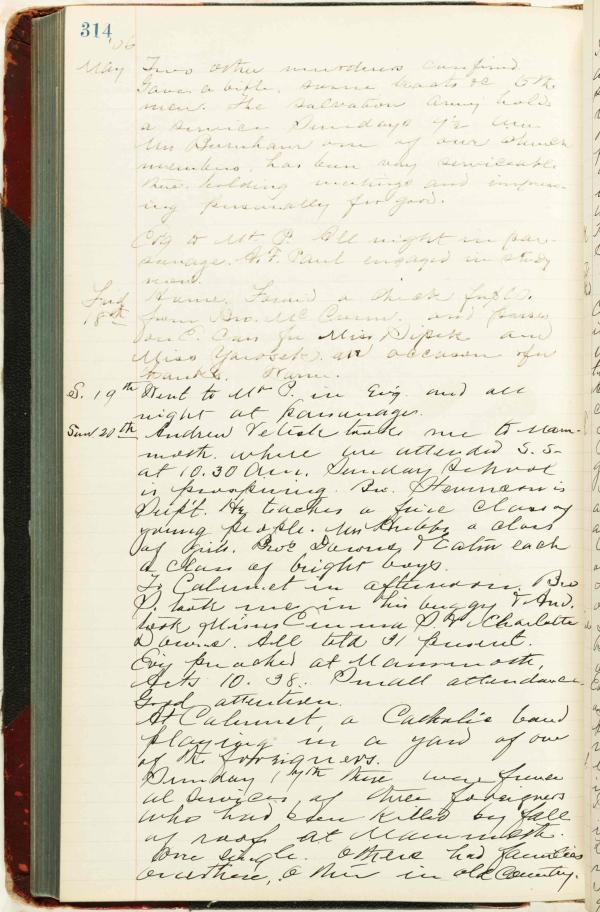 314
'06
May Two other murderers confined
Gave a bible, some tracts &c to the
men. The Salvation Army holds
a service Sundays 9½ A.M.
Mrs Burnham one of our church
members, has been very serviceable
there holding meetings and impress-
ing personally for good.
Evg to Mt. P. All night in par-
sonage. A. F. Paul engaged in study
now.
18th Home. Found a check
from Bro. McC and passes
on E. Cars for Miss Dipek and
Miss Yarosek, as occasion for
thanks. Home.
S. 19th Went to Mt P. in Evg. and all
night at parsonage.
Sun 20th Andrew Vetisk took me to Mam-
moth where we attended S.S.
at 10.30 A.M. Sunday School
is prospering. Bro. Stevenson is
Supt. He teaches a fine class of
young people. Mrs a class
of girls. Bros Downs & each
a class of bright boys.
To Calumet in afternoon. Bro
S. took me in his buggy & And.
took Misses Emma S & Charlotte
Downs. All told 31 present.
Evg preached at Mammoth,
Acts 10.38. Small attendance
Good attention.
At Calumet, a Catholic band
playing in a yard of one
of the foreigners.
Sunday, there were funer-
al services of three foreigners
who had been killed by fall
of roof at Mammoth.
One single. Others had families
one here, other in old Country.